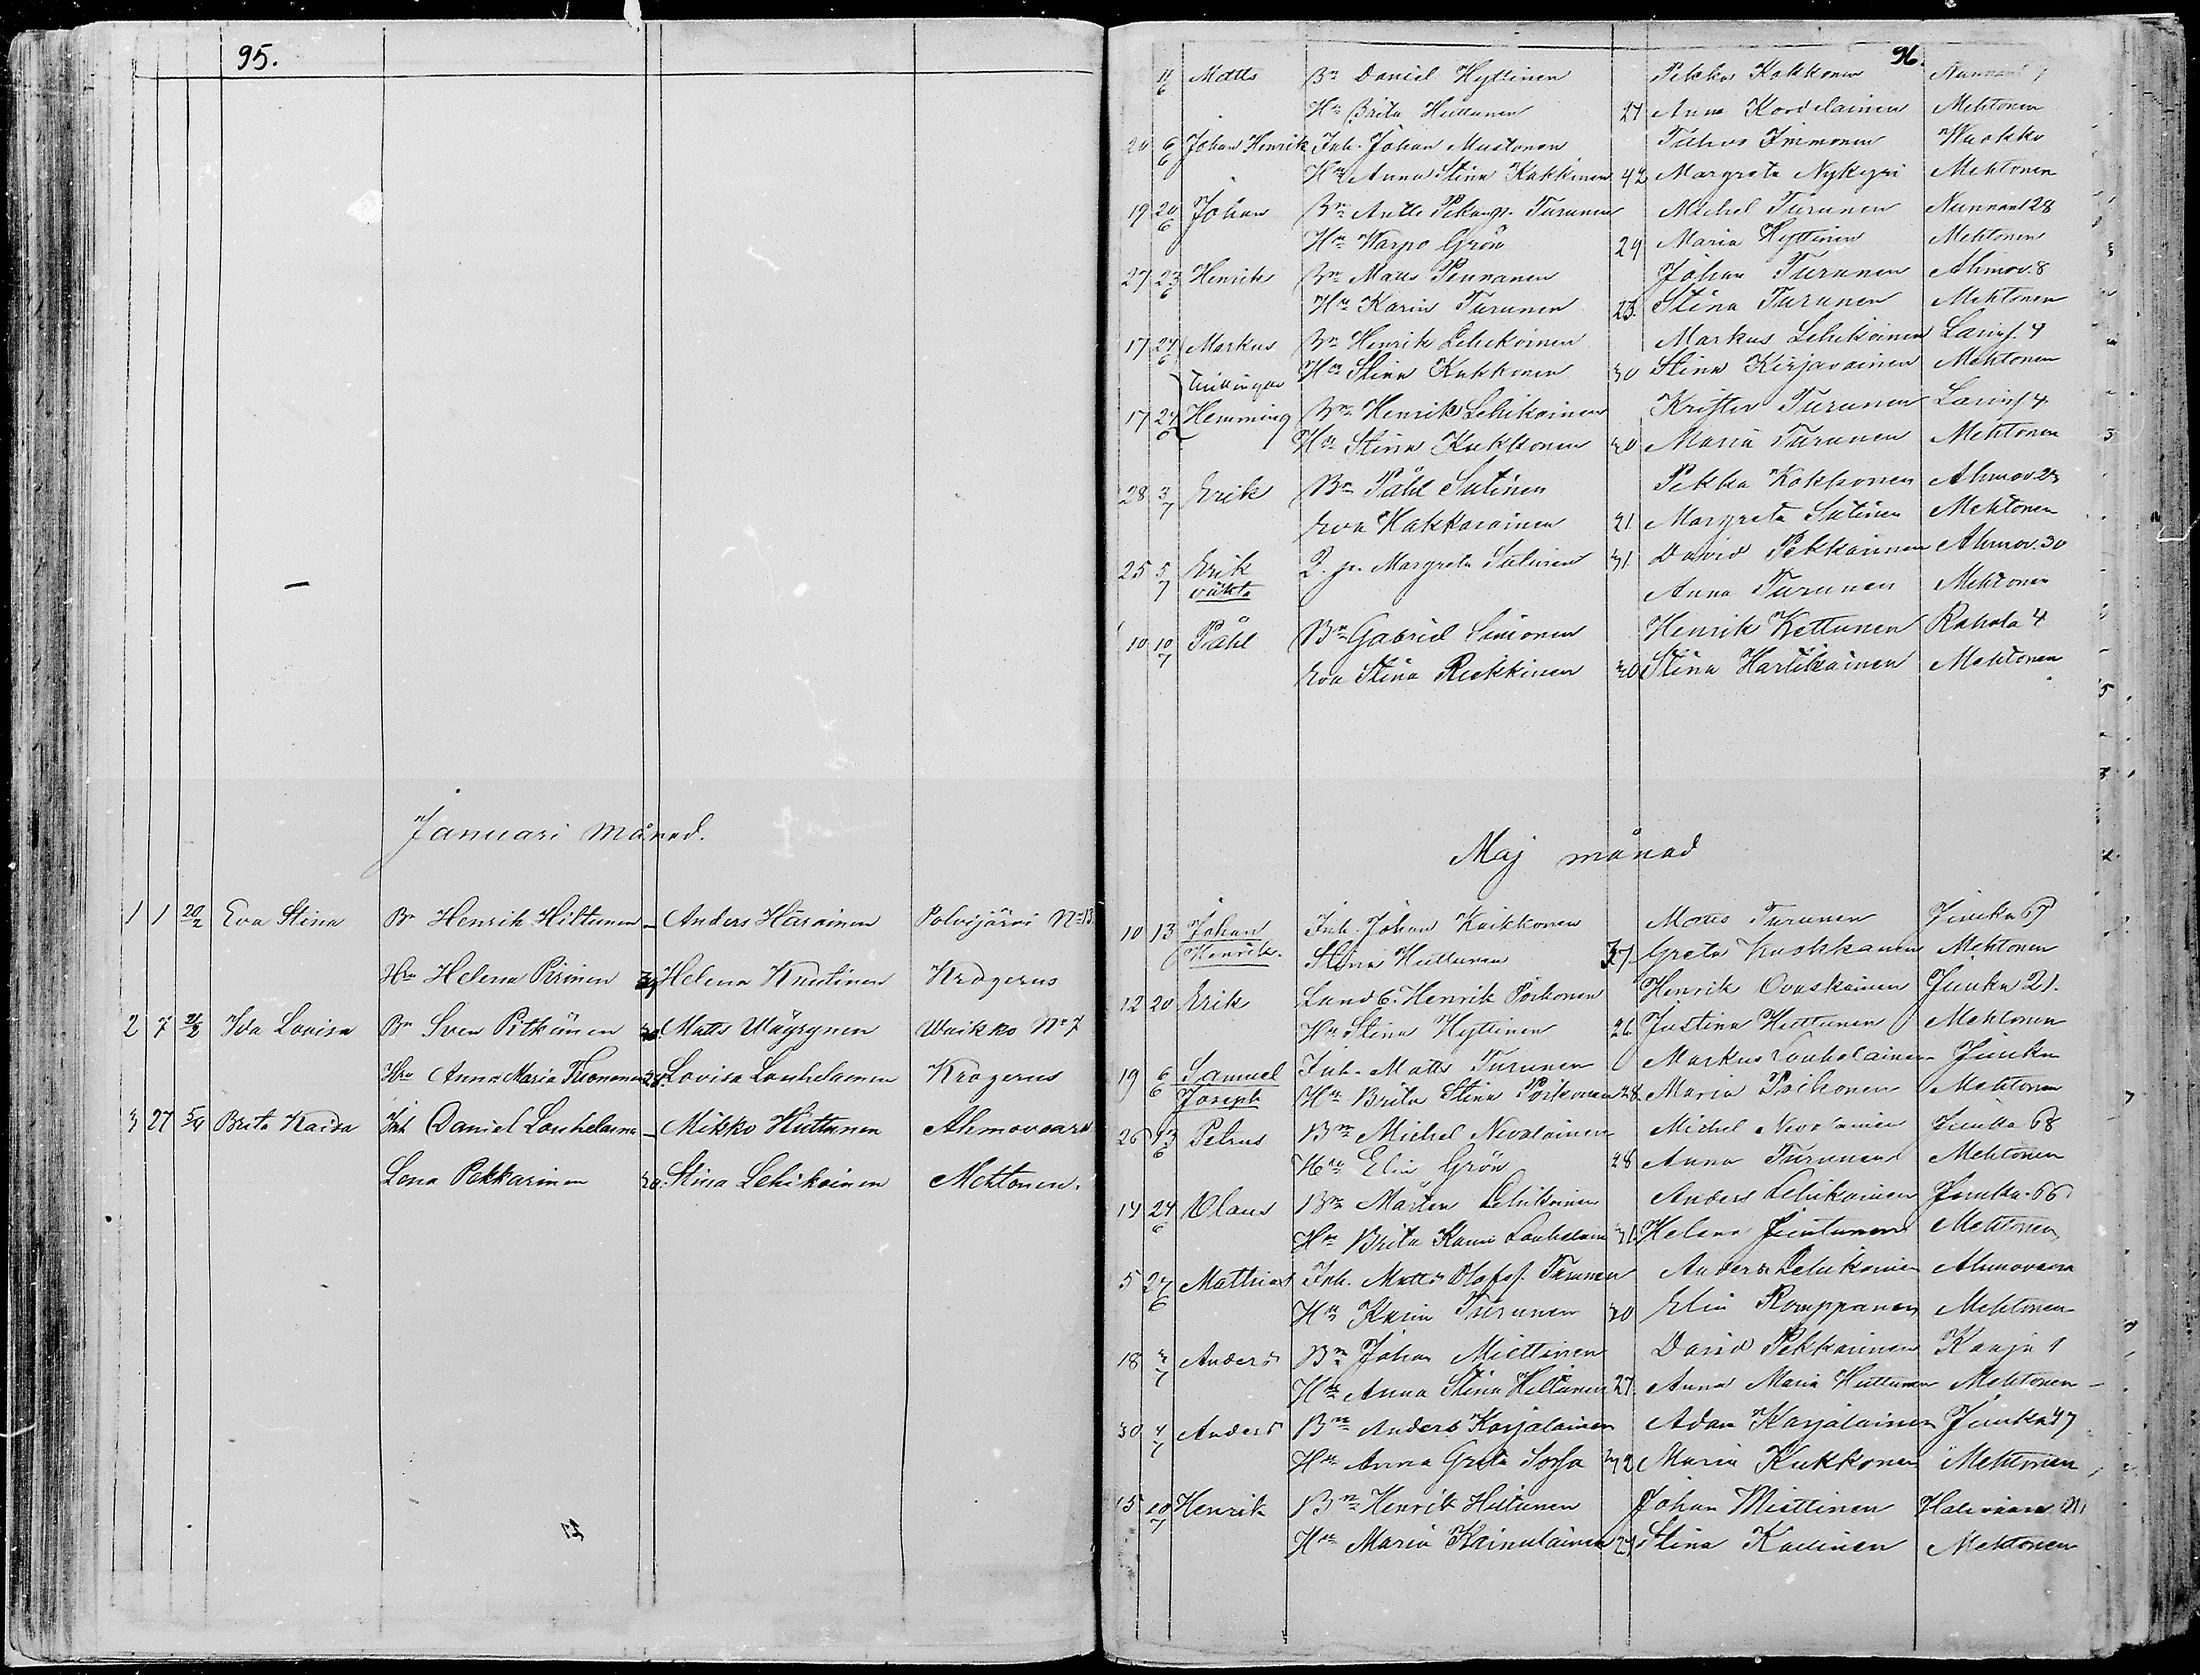 95.
Januari månad.
1 1 20/2 Eva Stina Bn Henrik Hiltunen - Anders Härainen Polvijärvi No 13.
Hru Helena Pirinen Helena Knutinen Krogerus
2 7 21/2 Ida Lovisa Bn Sven Pitkänen Matts Wäyrynen Waikko No 7
Hru Anna Maria 28 Lovisa Louhelainen Krogerus
3 27 5/4 Brita Kaisa Inh Daniel Louhelainen - Mikko Huttunen Ahmovaara
Lena Pekkarinen 30 Stina Lehikoinen Mehtonen.
96.
Matts Bn Daniel Hyttinen Pekka Kokkonen
Hu Brita Huttunen 27 Anna Kordelainen Mehtonen
20 6/6 Johan Henrik Inh. Johan Mustonen Immonen
Hu Anna Stina Kakkinen 42 Margreta Nykyri Mehtonen
19 20/6 Johan Bn Antti Turunen Michel Turunen Nunnanl 28
Hu Warpo Grön 29 Maria Hyttinen Mehtonen
27 23/6 Henrik Bn Maus Pennanen Johan Turunen Ahmov. 8
Hu Karin Turunen 23 Stina Turunen Mehtonen
17 24/6 Markus Bn Henrik Lehikoinen Markus Lehikoinen Larinf. 4
Tvillingar Hu Stina Kukkonen 30 Stina Kirjavainen Mehtonen
17 24/6 Hemming Bn Henrik Lehikoinen Krister Turunen Larinf 4
Hu Stina Kukkonen 30 Maria Turunen Mehtonen
28 3/7 Erik Bn Påhl Sutinen Pekka Kokkonen Ahmov. 23
Eva Hakkarainen 21 Margreta Sutinen Mehtonen
25 5/7 Erik Q. p. Margreta Sutinen 31 David Pekkarinen Ahmov. 30
oäkta Anna Turunen Mehtonen
10 10/7 Påhl Bn Gabriel Simonen Henrik Kettunen Rahola 4
Eva Stina Ruckkinen 30 Stina Hartikainen Mehtonen
Maj månad
10 13 Johan Inh. Johan Kuikkonen Matts Turunen Juuka
Henrik. Stina Huttunen 37 Greta Mehtonen
12 20 Erik Henrik Poikonen Henrik Ovaskainen Juuka 21.
Hu Stina Hyttinen 26 Justina Huttunen Mehtonen
19 6/6 Samuel Inh. Matts Turunen Markus Louhelainen Juuka
Joseph Hu Brita Stina Poikonen 28 Maria Poikonen Mehtonen
26 13/6 Petrus Bn Michel Nevalainen Michel Nevalainen Juuka 68
Hu Elin Grön 28 Anna Turunen Mehtonen
14 24/6 Olaus Bn Mårten Lehikoinen Anders Lehikoinen Juuka. 66
Hu Brita Karin Louhelain 31 Helena Juutunen Mehtonen
5 27/6 Mathias Inh. Matts Olofs. Turunen Anders Lehikoinen Ahmovaara
Hu Karin Turunen 30 Elin Romppanen Mehtonen
18 3/7 Anders Bn Johan Miettinen David Pekkarinen Kaaji 1
Hu Anna Stina Hiltunen 27. Anna Maria Huttunen Mehtonen
30 4/7 Anders Bn Anders Karjalainen Adam Karjalainen Juuka 47
Hu Anna Greta Sorsa 32 Maria Kukkonen Mehtonen
15 10/7 Henrik Bn Henrik Hiltunen Johan Miettinen
Hu Maria Kainulainen 21 Stina Mehtonen